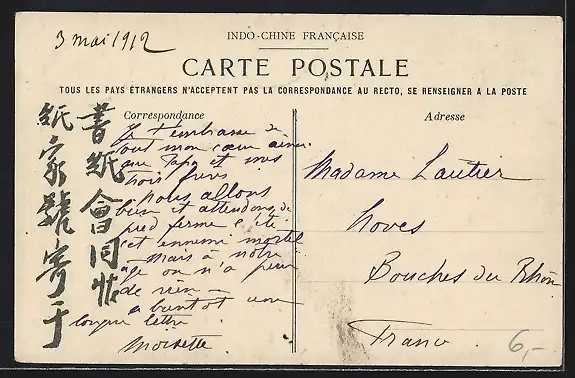 3 mai 1912
INDO-CHINE FRANÇAISE
CARTE POSTALE
TOUS LES PAYS ÉTRANGERS N'ACCEPTENT PAS LA CORRESPONDANCE AU RECTO, SE RENSEIGNER A LA POSTE
Correspondance
Je t'embrasse de
tout mon cœur ainsi
que Papa et mes
trois frères.
Nous allons
bien et attendons de
pied ferme l'été
cet ennemi mortel
mais à notre
âge on n'a peur
de rien –
a bientôt une
longue lettre
書紙會同帖
紙家號寄于
Adresse
Madame Lautier
Noves
Bouches du Rhône
France
6,–